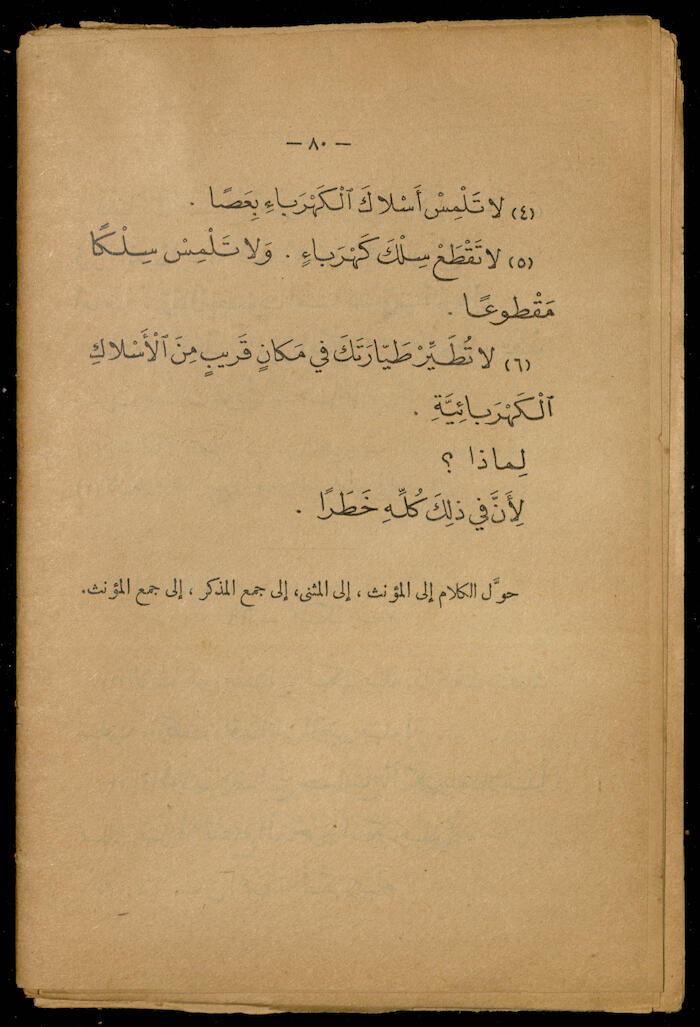 — ٨٠ —
(٤) لا تَلْمِسْ أَسْلاكَ ٱلْكَهْرَباءِ بِعَصًا .
(٥) لا تَقْطَعْ سِلْكَ كَهْرَباءٍ . وَلا تَلْمِسْ سِلْكًا
مَقْطوعًا .
(٦) لا تُطَيِّرْ طَيّارَتَكَ في مَكانٍ قَريبٍ مِنَ ٱلْأَسْلاكِ
ٱلْكَهْرَبائِيَّةِ .
لِماذا ؟
لِأَنَّ في ذلِكَ كُلِّهِ خَطَرًا .
حوِّل الكلام إلى المؤنث ، إلى المثنى، إلى جمع المذكر ، إلى جمع المؤنث.